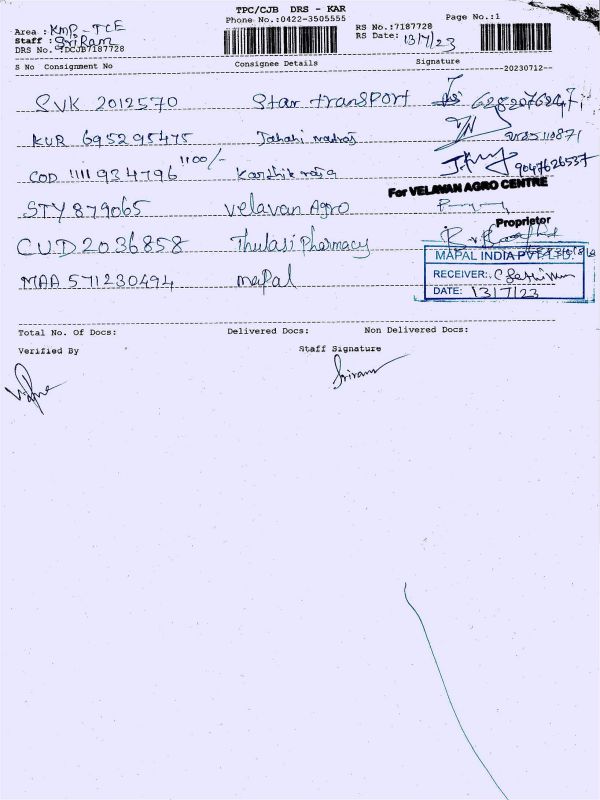 TPC/CJB DRS - KAR
Phone No.:0422-3505555
RS No.:7187728
Page No.:1
Area : KMP - TCE
Staff : SriRam
RS Date: 13/7/23
DRS No. TDCJB7187728
S No Consignment No Consignee Details Signature
20230712--
SVK 2012570 Star transport
KUR 695295475
COD 1111934796 1100/- Karthik raja 9047626537
For VELAVAN AGRO CENTRE
STY 879065 Velavan Agro
Proprietor
CUD2036858 Thulasi Pharmacy
MAPAL INDIA PVT LTD
MAA 571230494 mapal RECEIVER:
DATE: 13/7/23
Total No. Of Docs: Delivered Docs: Non Delivered Docs:
Verified By Staff Signature
Sriram